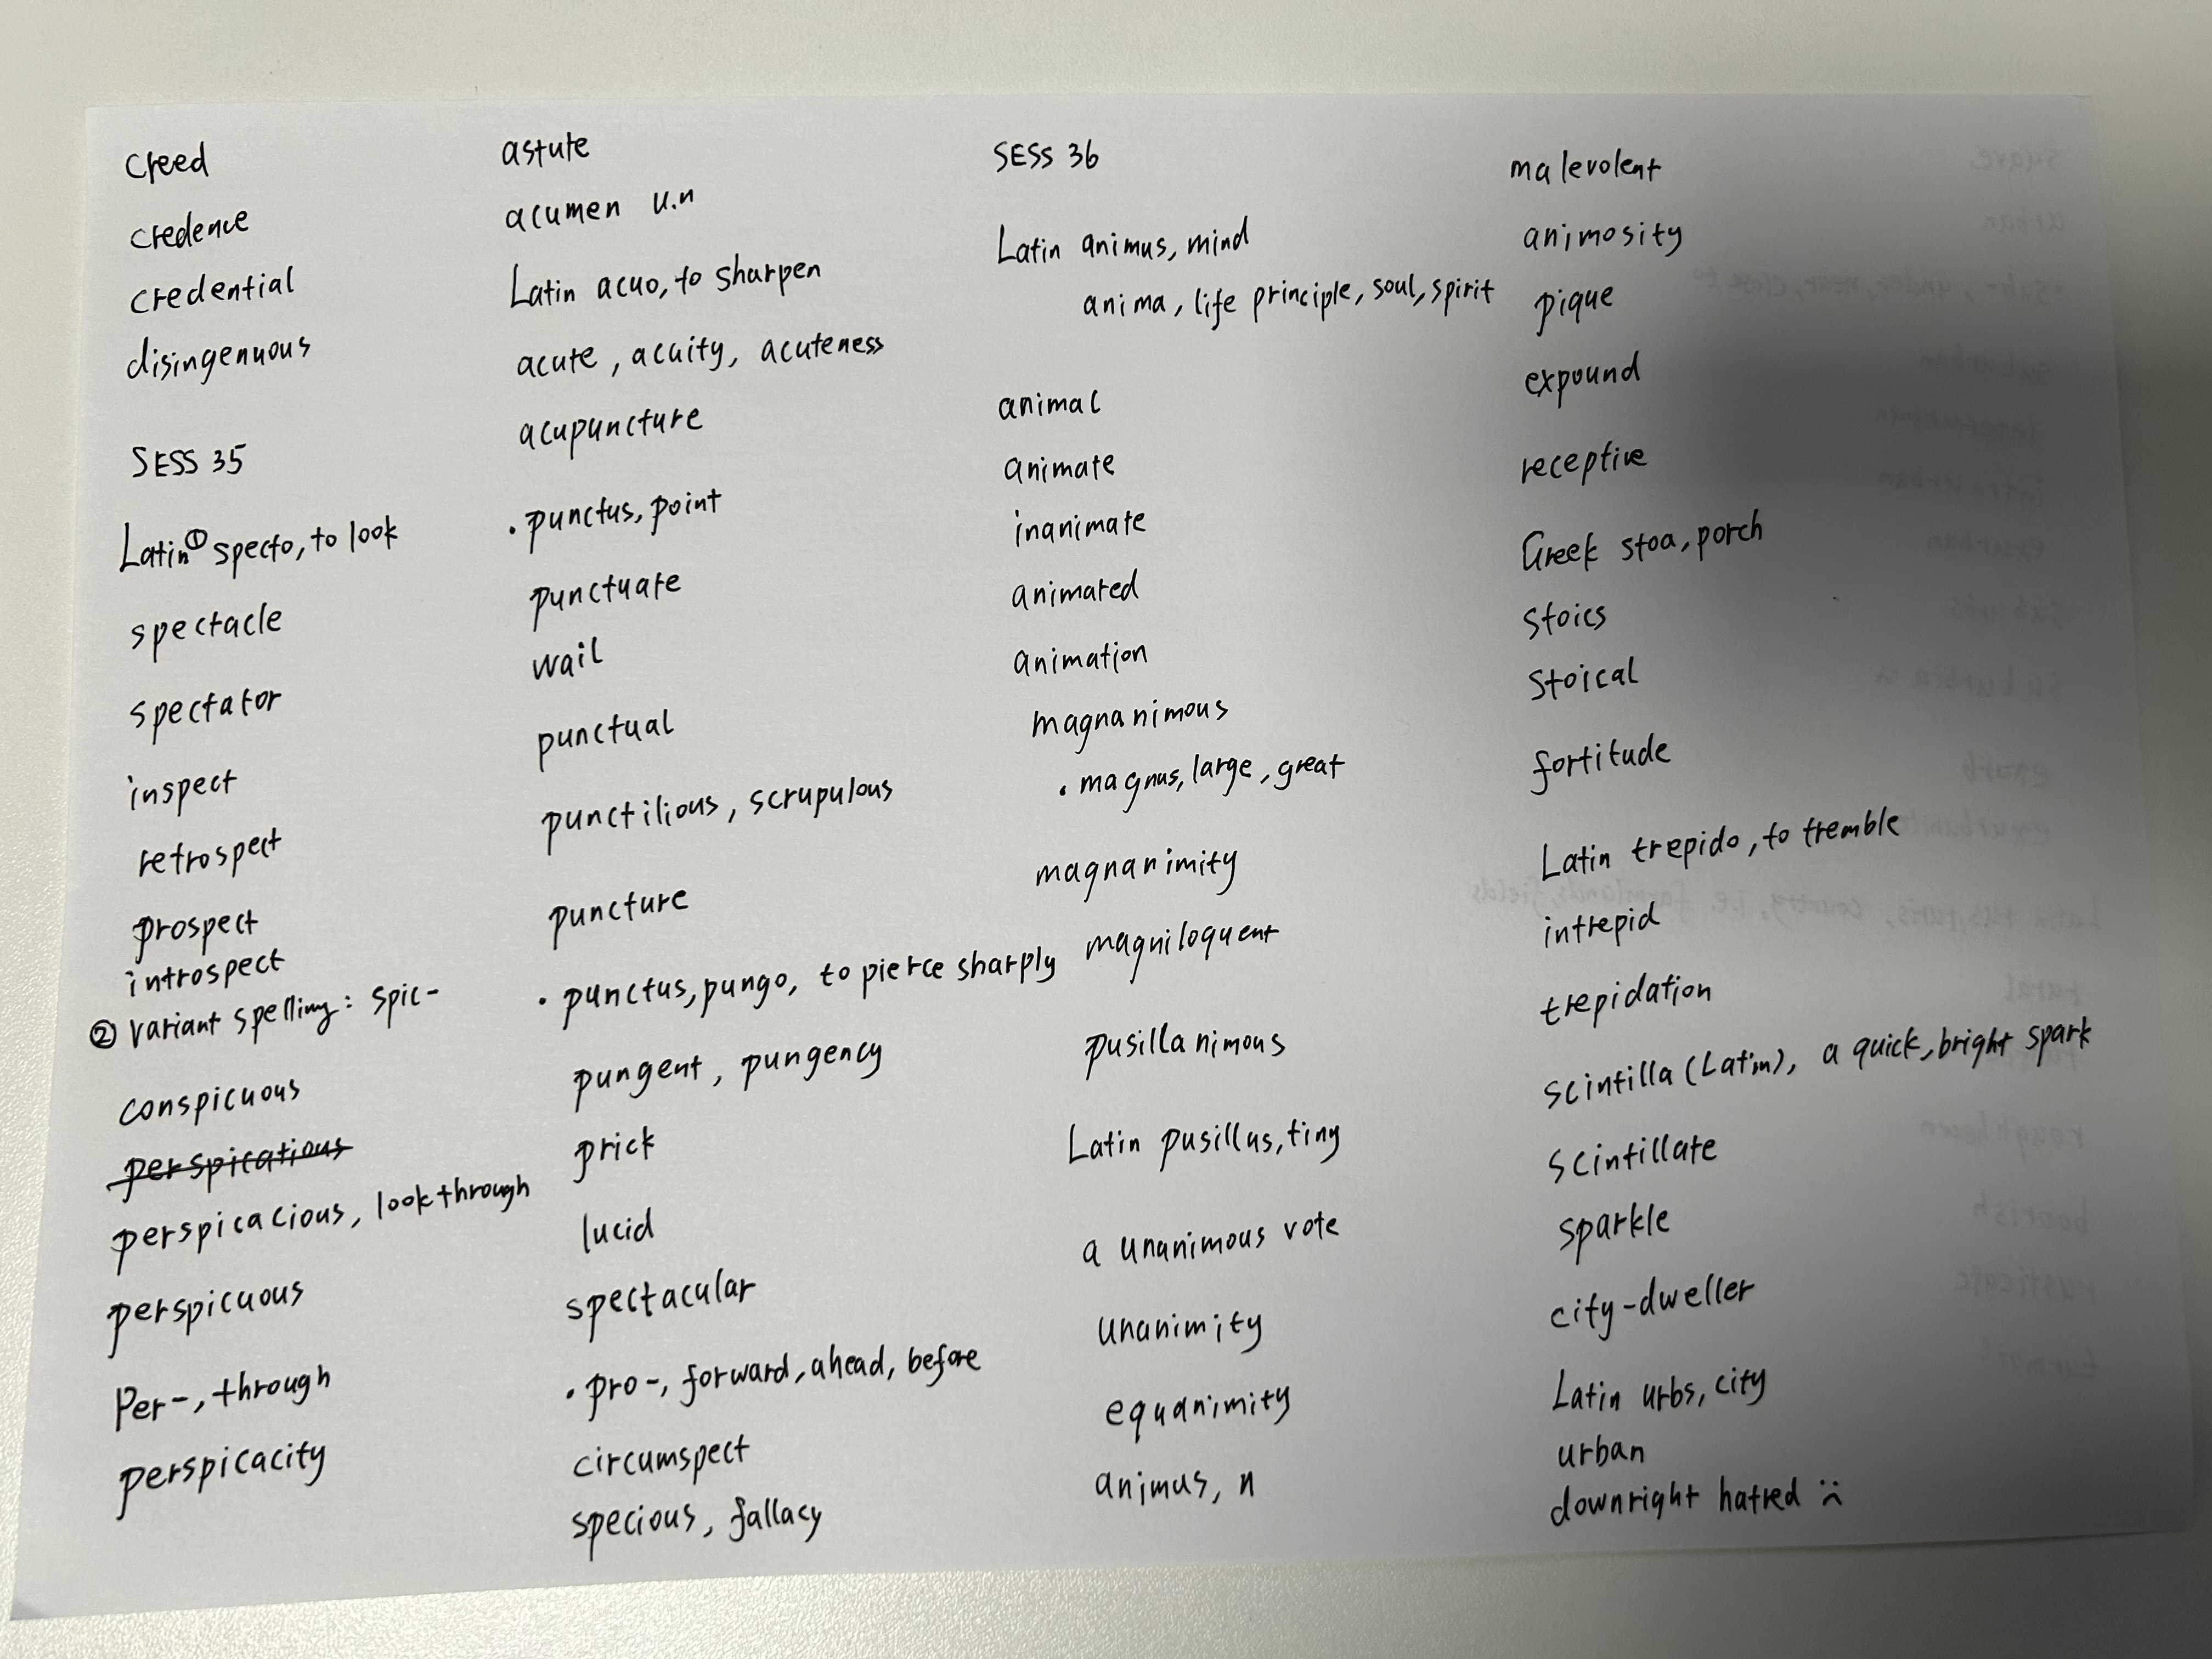 creed
credence
credential
disingenuous
SESS 35
Latin ① specto, to look
spectacle
spectator
inspect
retrospect
prospect
introspect
② variant spelling: spic-
conspicuous
perspicatious
perspicacious, look through
perspicuous
Per-, through
perspicacity
astute
acumen u.n
Latin acuo, to sharpen
acute, acuity, acuteness
acupuncture
• punctus, point
punctuate
wail
punctual
punctilious, scrupulous
puncture
• punctus, pungo, to pierce sharply
pungent, pungency
prick
lucid
spectacular
• pro-, forward, ahead, before
circumspect
specious, fallacy
SESS 36
Latin animus, mind
anima, life principle, soul, spirit
animal
animate
inanimate
animated
animation
magnanimous
• magnus, large, great
magnanimity
magniloquent
pusillanimous
Latin pusillus, tiny
a unanimous vote
unanimity
equanimity
animus, n
malevolent
animosity
pique
expound
receptive
Greek stoa, porch
Stoics
Stoical
fortitude
Latin trepido, to tremble
intrepid
trepidation
scintilla (Latin), a quick, bright spark
scintillate
sparkle
city-dweller
Latin urbs, city
urban
downright hatred :(